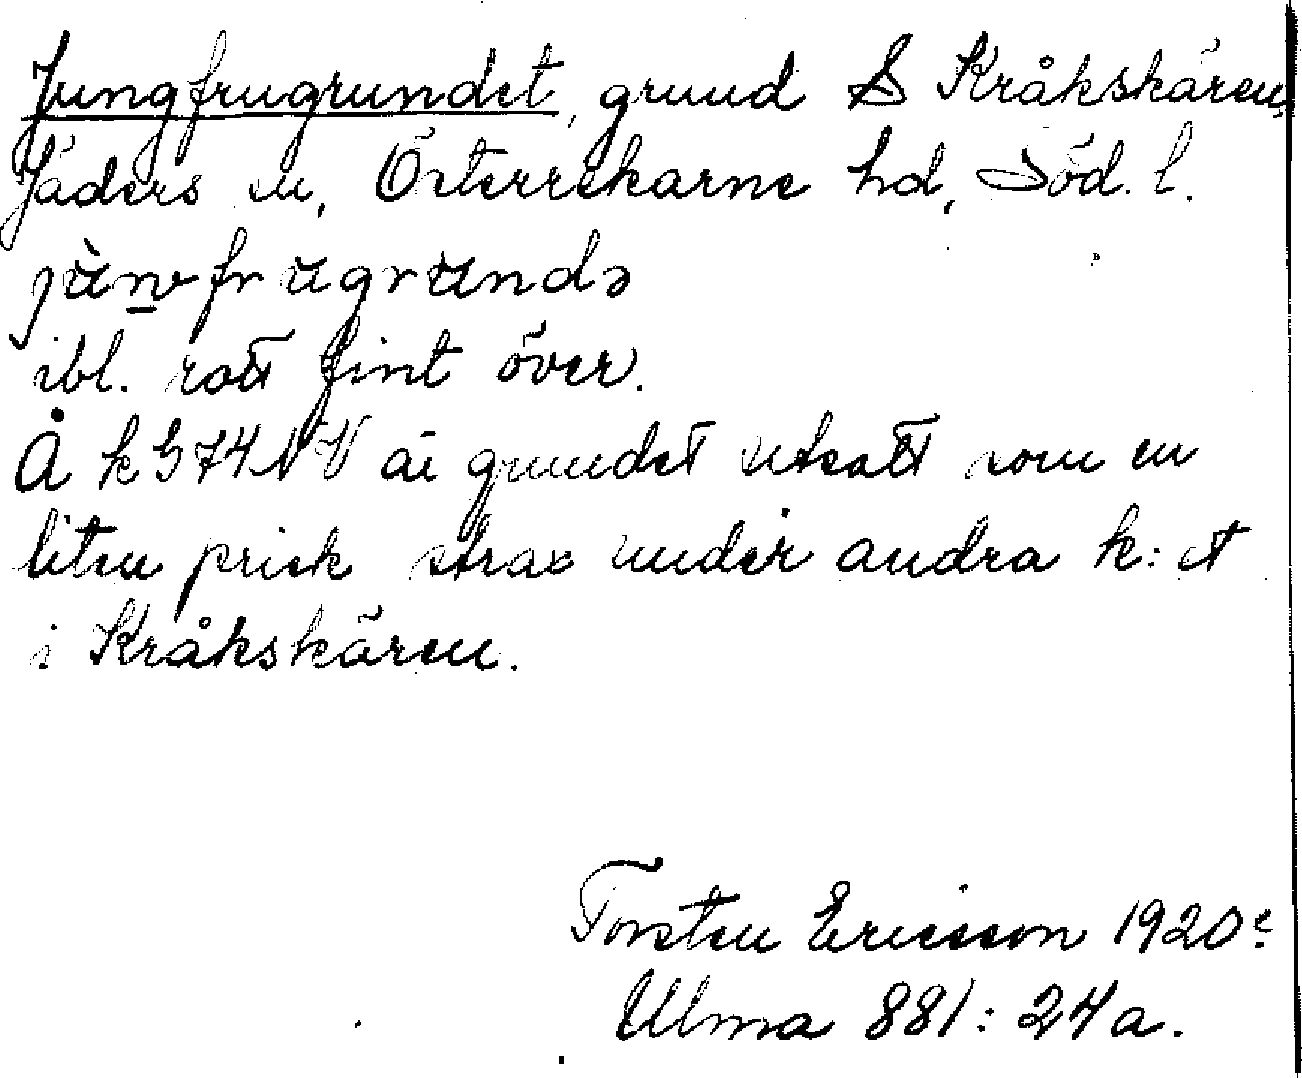 Jungfrugrundet, grund S Kråkskären,
Jäders sn, Österrekarne hd, Söd. l.
jùnfrugrundə
ibl. rätt fint över.
Å k G74NV är grundet utsatt som en
liten prick strax under andra k:et
i Kråkskären.
Torsten Ericsson 1920
Ulma 881:24a.